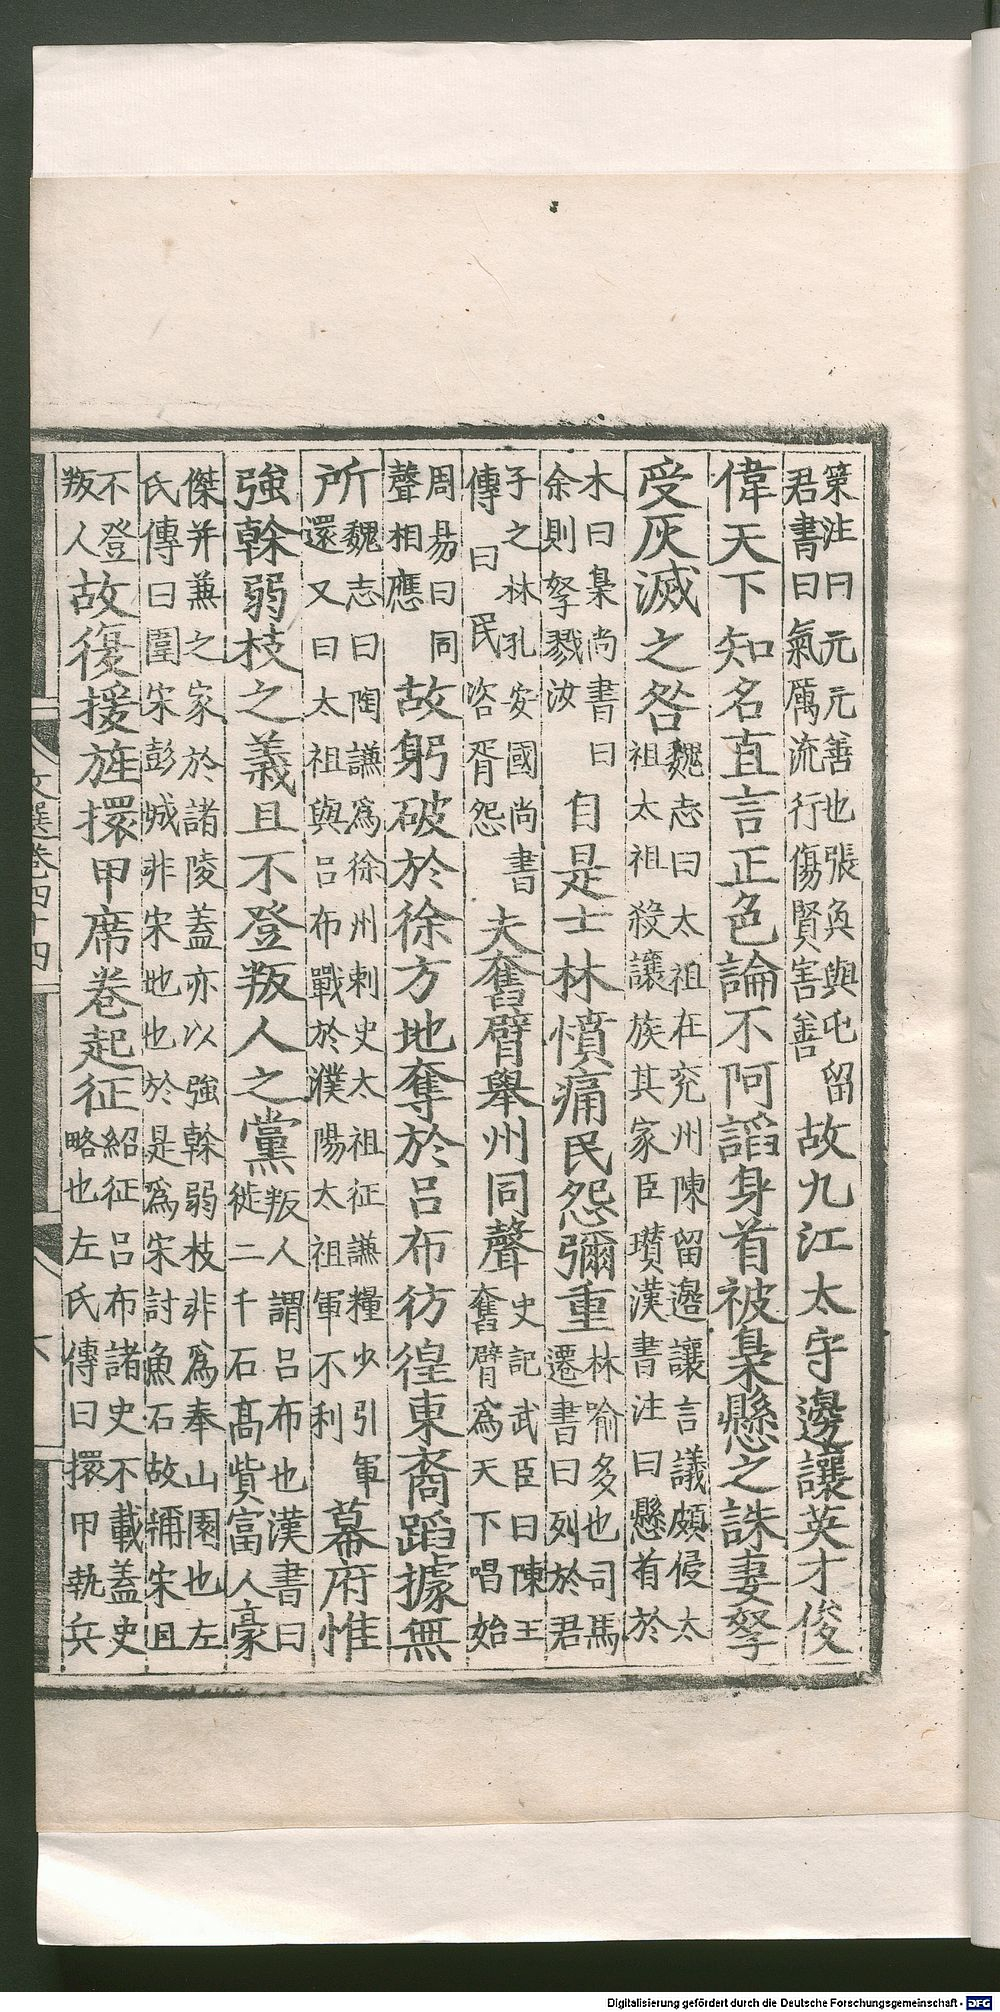 策注曰元元善也張奐與屯留
君書曰氣厲流行傷賢害善
故九江太守邊讓英才俊
偉天下知名直言正色論不阿諂身首被梟懸之誅妻孥
受灰滅之咎
魏志曰太祖在兖州陳留邊讓言議頗侵太
祖太祖殺讓族其家臣瓚漢書注曰懸首於
木曰梟尚書曰
余則孥戮汝
自是士林憤痛民怨彌重
林喻多也司馬
遷書曰列於君
子之林孔安國尚書
傳曰民咨胥怨
夫奮臂舉州同聲
史記武臣曰陳王
奮臂爲天下唱始
周易曰同
聲相應
故躬破於徐方地奪於呂布彷徨東裔蹈據無
所
魏志曰陶謙爲徐州刺史太祖征謙糧少引軍
還又曰太祖與呂布戰於濮陽太祖軍不利
幕府惟
強幹弱枝之義且不登叛人之黨
叛人謂呂布也漢書曰
徙二千石高貲富人豪
傑并兼之家於諸陵蓋亦以強幹弱枝非爲奉山園也左
氏傳曰圍宋彭城非宋地也於是爲宋討魚石故稱宋且
不登
叛人
故復援旌擐甲席卷起征
紹征呂布諸史不載蓋史
略也左氏傳曰擐甲執兵
文選卷四十四
六
Digitalisierung gefördert durch die Deutsche Forschungsgemeinschaft - DFG